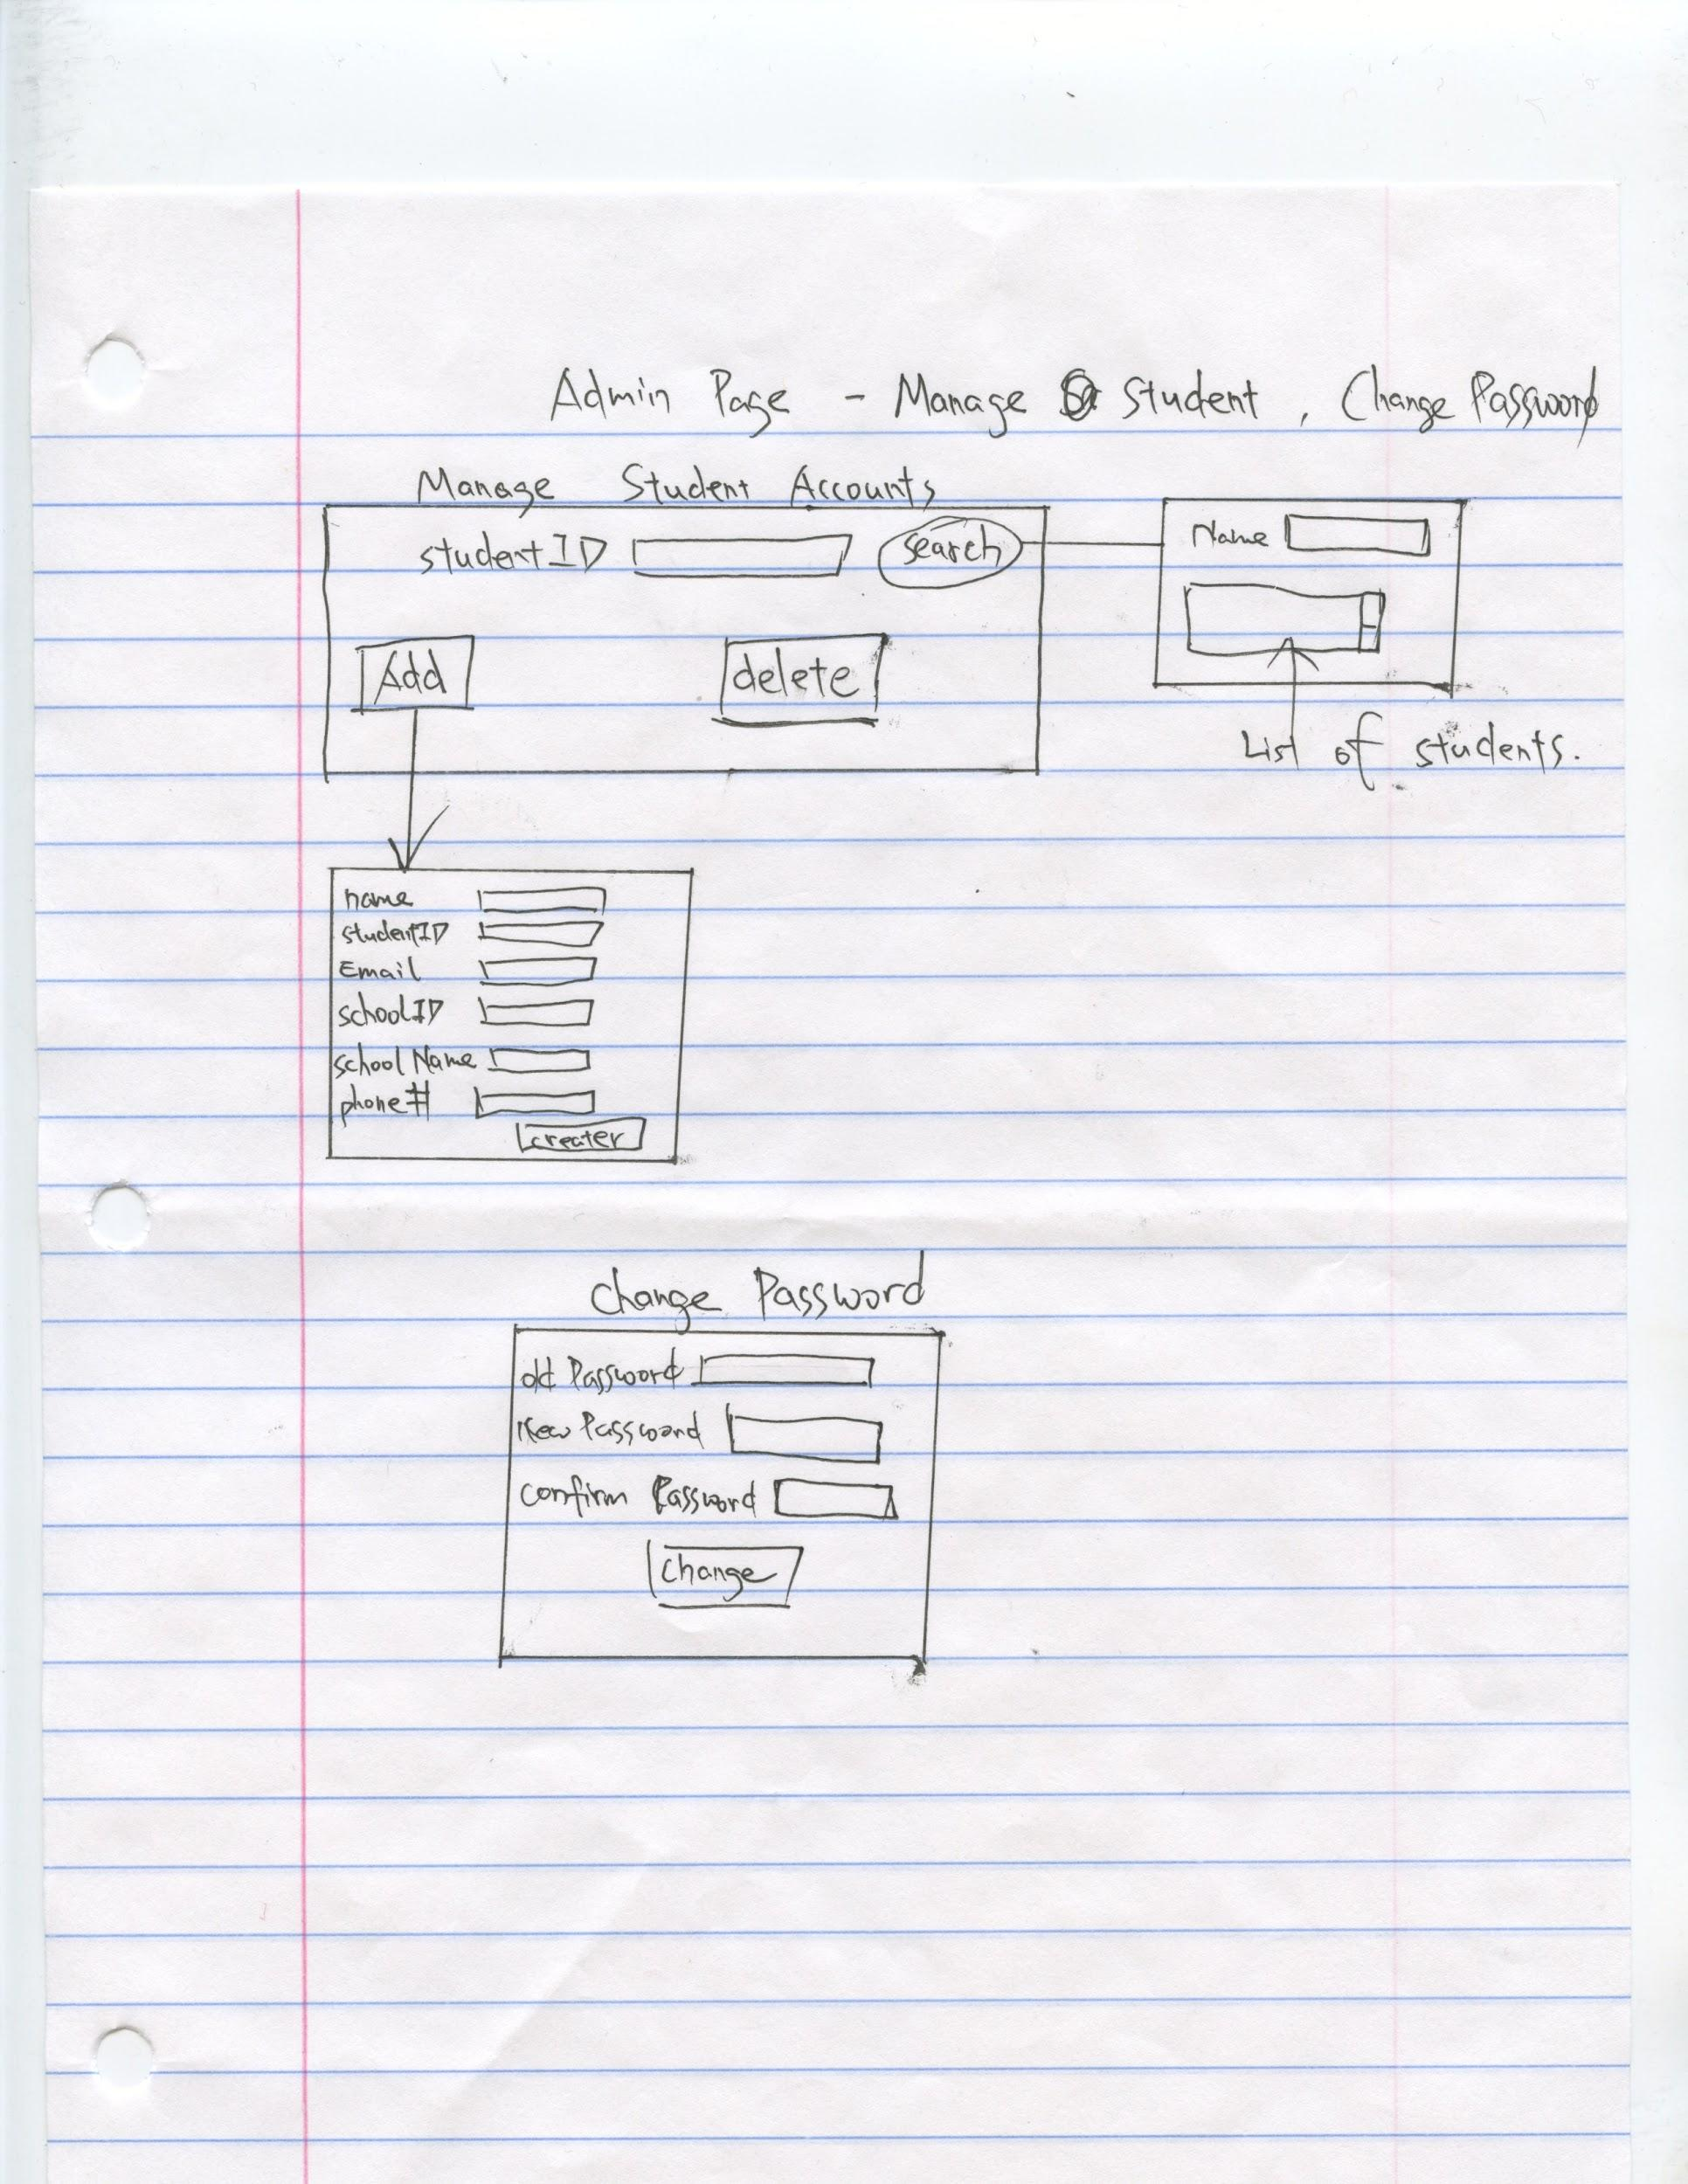 Admin Page - Manage Student, Change Password
Manage Student Accounts
studentID search
Name
Add delete
List of students.
name
studentID
Email
schoolID
school Name
phone#
creater
Change Password
old Password
New Password
confirm Password
change